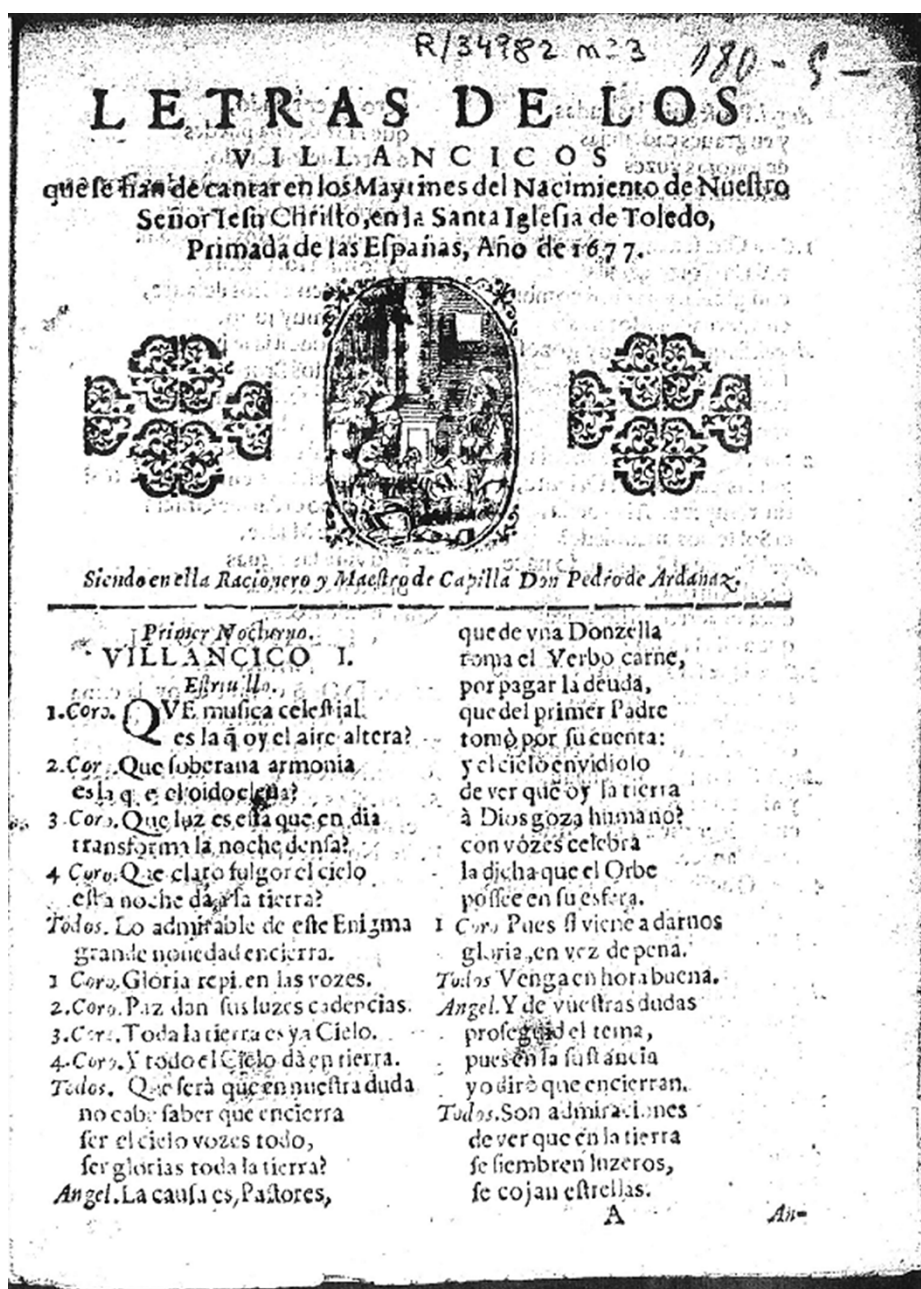 R/34982 nº 3
180-5-
LETRAS DE LOS
VILLANCICOS
que se han de cantar en los Maytines del Nacimiento de Nueſtro
Señor Ieſu Chriſto, en la Santa Igleſia de Toledo,
Primada de las Eſpañas, Año de 1677.
Siendo en ella Racionero y Maeſtro de Capilla Don Pedro de Ardanaz.
Primer Nocturno.
VILLANCICO I.
Eſtriuillo.
1. Coro. QVE muſica celeſtial
es la q̄ oy el aire altera?
2. Cor. Que ſoberana armonia
es la q̄ el oido eleua?
3. Coro. Que luz es eſta que en dia
transforma la noche denſa?
4 Coro. Que claro fulgor el cielo
eſta noche dà à la tierra?
Todos. Lo admirable de eſte Enigma
grande nouedad encierra.
1 Coro. Gloria repiten las vozes.
2. Coro. Paz dan ſus luzes cadencias.
3. Coro. Toda la tierra es ya Cielo.
4. Coro. Y todo el Cielo dà en tierra.
Todos. Que ſerà que en nueſtra duda
no cabe ſaber que encierra
ſer el cielo vozes todo,
ſer glorias toda la tierra?
Angel. La cauſa es, Paſtores,
que de vna Donzella
toma el Verbo carne,
por pagar la deuda,
que del primer Padre
tomò por ſu cuenta:
y el cielo envidioſo
de ver que oy la tierra
à Dios goza humano?
con vózes celebra
la dicha que el Orbe
poſſee en ſu esfera.
1 Coro Pues ſi viene a darnos
gloria, en vez de pena.
Todos Venga en hora buena.
Angel. Y de vueſtras dudas
proſeguid el tema,
pues en la ſuſtancia
yo dirè que encierran.
Todos. Son admiraciones
de ver que en la tierra
ſe ſiembren luzeros,
ſe cojan eſtrellas.
A
An-